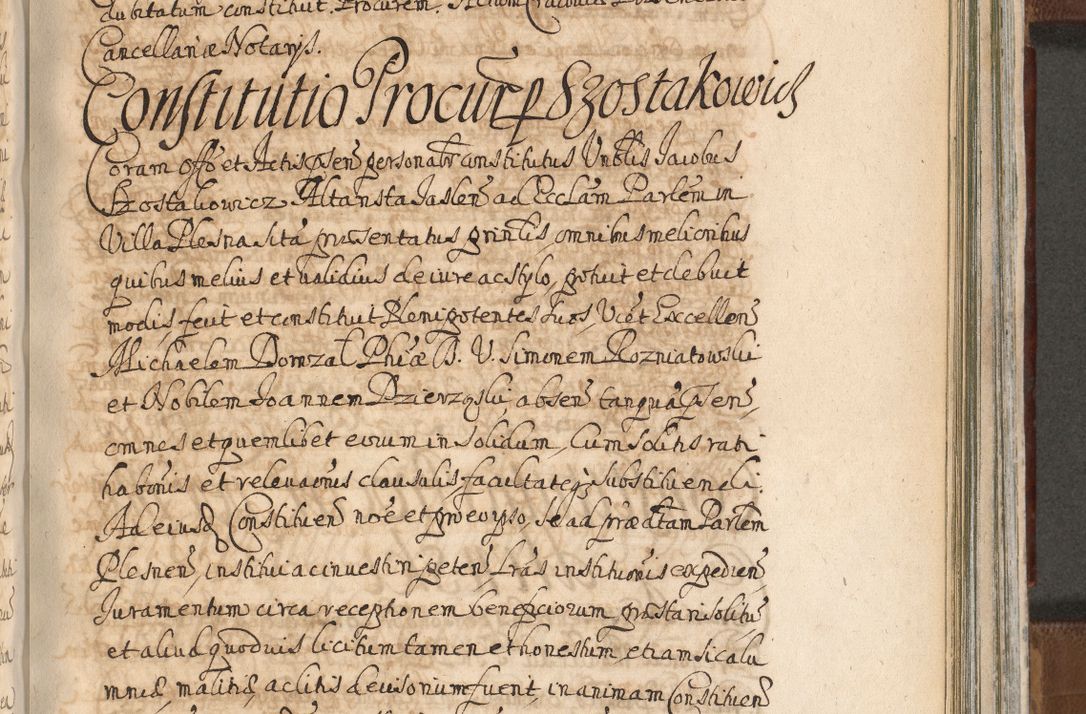 dubitatum constituit Procurem. Actum Cracoviæ
Cancellariæ Notarijs.
Constitutio Procur̃ p Szostakowicz
Coram offo et Actis psen personalr constitutus Vnblis Jacobus
Szostakowicz Altarista Jaslen ad Ecclam Parlem in
Villa Plesna sita præsentatus prinlis omnibus melioribus
quibus melius et validius de iure ac stylo, potuit et debuit
modis, fecit et constituit Plenipotentes suos, Excellen
Michaelem Domzal Phiæ B. V. Simonem Rozniatowski
et Nobilem Joannem Dzierzgski, absen tanquã psen,
omnes et quemlibet eorum in solidum, Cum solitis rati
habonis et relevaonis clausulis, facultateq substituendi.
Ad eiusd Constituen noe et pro eo ipso, se ad prædctam Parlem
Plesnen, institui ac investiri peten, Lras institutionis expedien
Juramentum circa receptionem beneficiorum præstari solitu
et aliud quoduis licitum tamen et honestum, etiam si calu
mniæ malitiæ ac litis decisorium fuerit, in animam Constituen